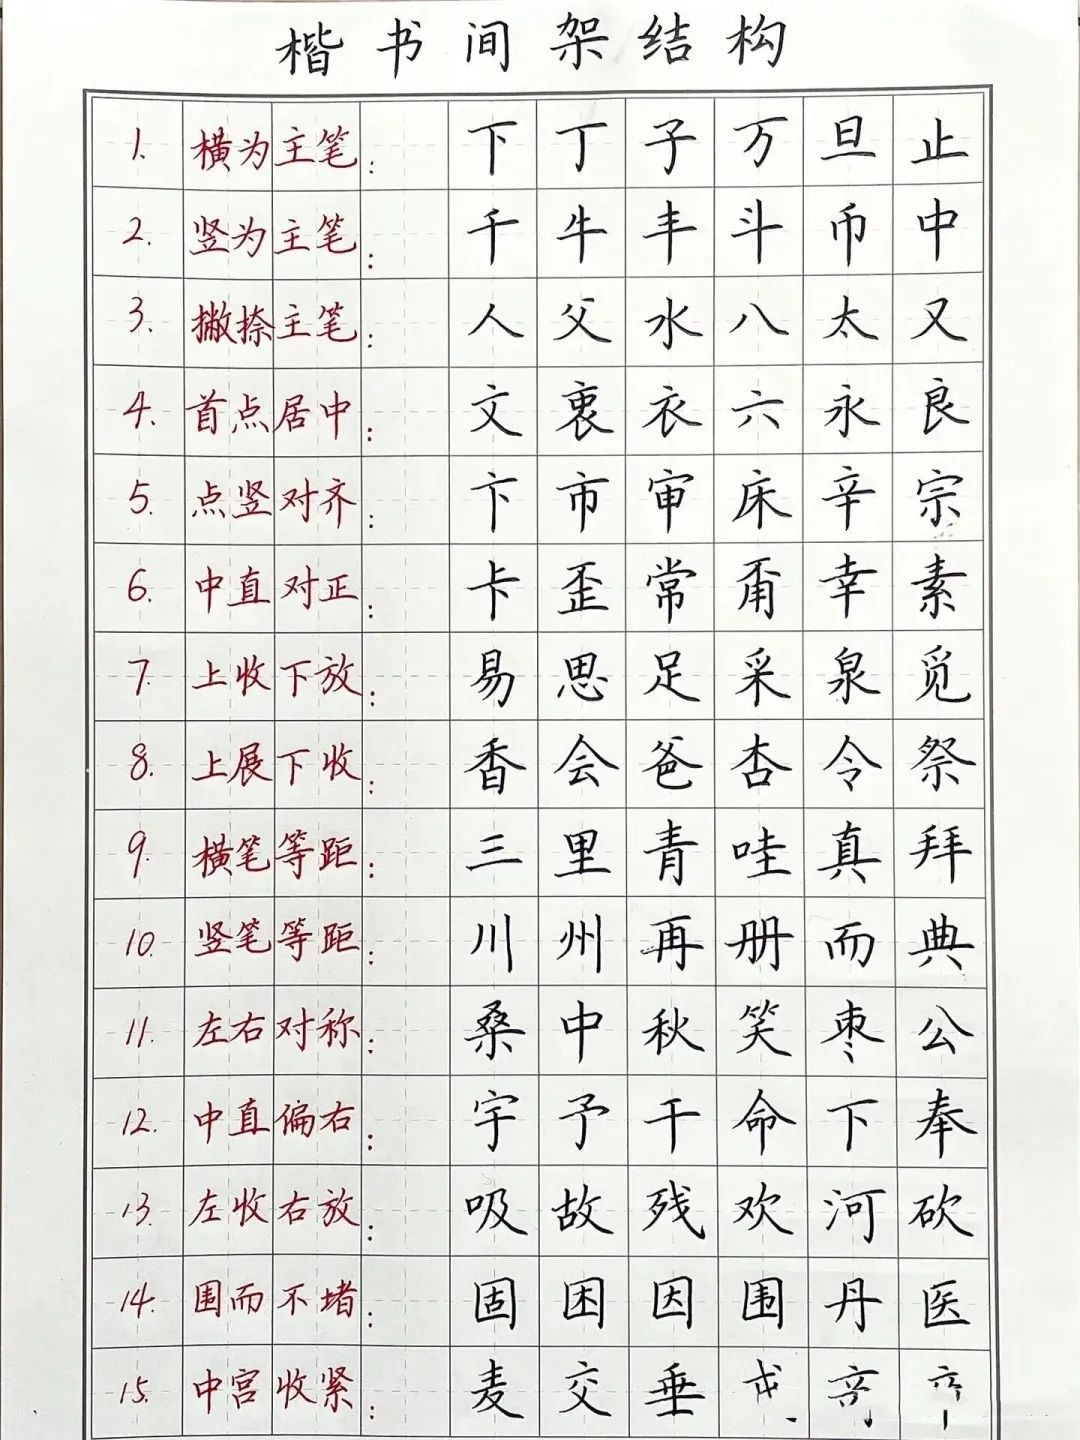 楷书间架结构
1. 横为主笔： 下 丁 子 万 旦 止
2. 竖为主笔： 千 牛 丰 斗 币 中
3. 撇捺主笔： 人 父 水 八 太 又
4. 首点居中： 文 衷 衣 六 永 良
5. 点竖对齐： 卞 市 审 床 辛 宗
6. 中直对正： 卡 歪 常 甭 幸 素
7. 上收下放： 易 思 足 采 泉 觅
8. 上展下收： 香 会 爸 杏 令 祭
9. 横笔等距： 三 里 青 哇 真 拜
10. 竖笔等距： 川 州 再 册 而 典
11. 左右对称： 桑 中 秋 笑 枣 公
12. 中直偏右： 宇 予 干 命 下 奉
13. 左收右放： 吸 故 残 欢 河 砍
14. 围而不堵： 固 困 因 围 丹 医
15. 中宫收紧： 麦 交 垂